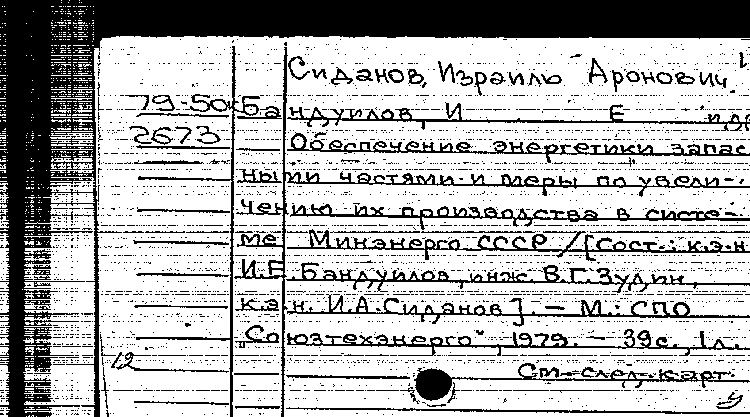 Сиданов, Израиль Аронович
79-50 Бандуилов, И Е и др
2673 Обеспечение энергетики запас
ными частями и меры по увели-
чению их производства в систе-
ме Минэнерго СССР / [Сост.: к.э.н
И.Е. Бандуилов, инж. В.Г. Зудин,
к.э.н. И.А. Сиданов]. — М.: СПО
"Союзтехэнерго", 1979. — 39 с., 1 л.
12 См. след. карт.